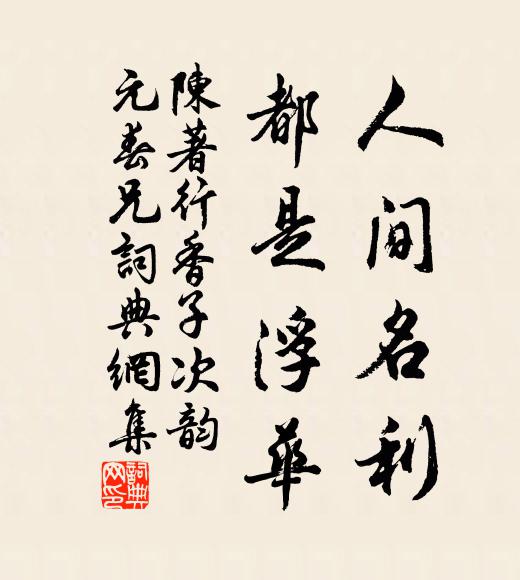 人間名利
都是浮華
陳著行香子次韵
元春兄詞典網集
詞典网印